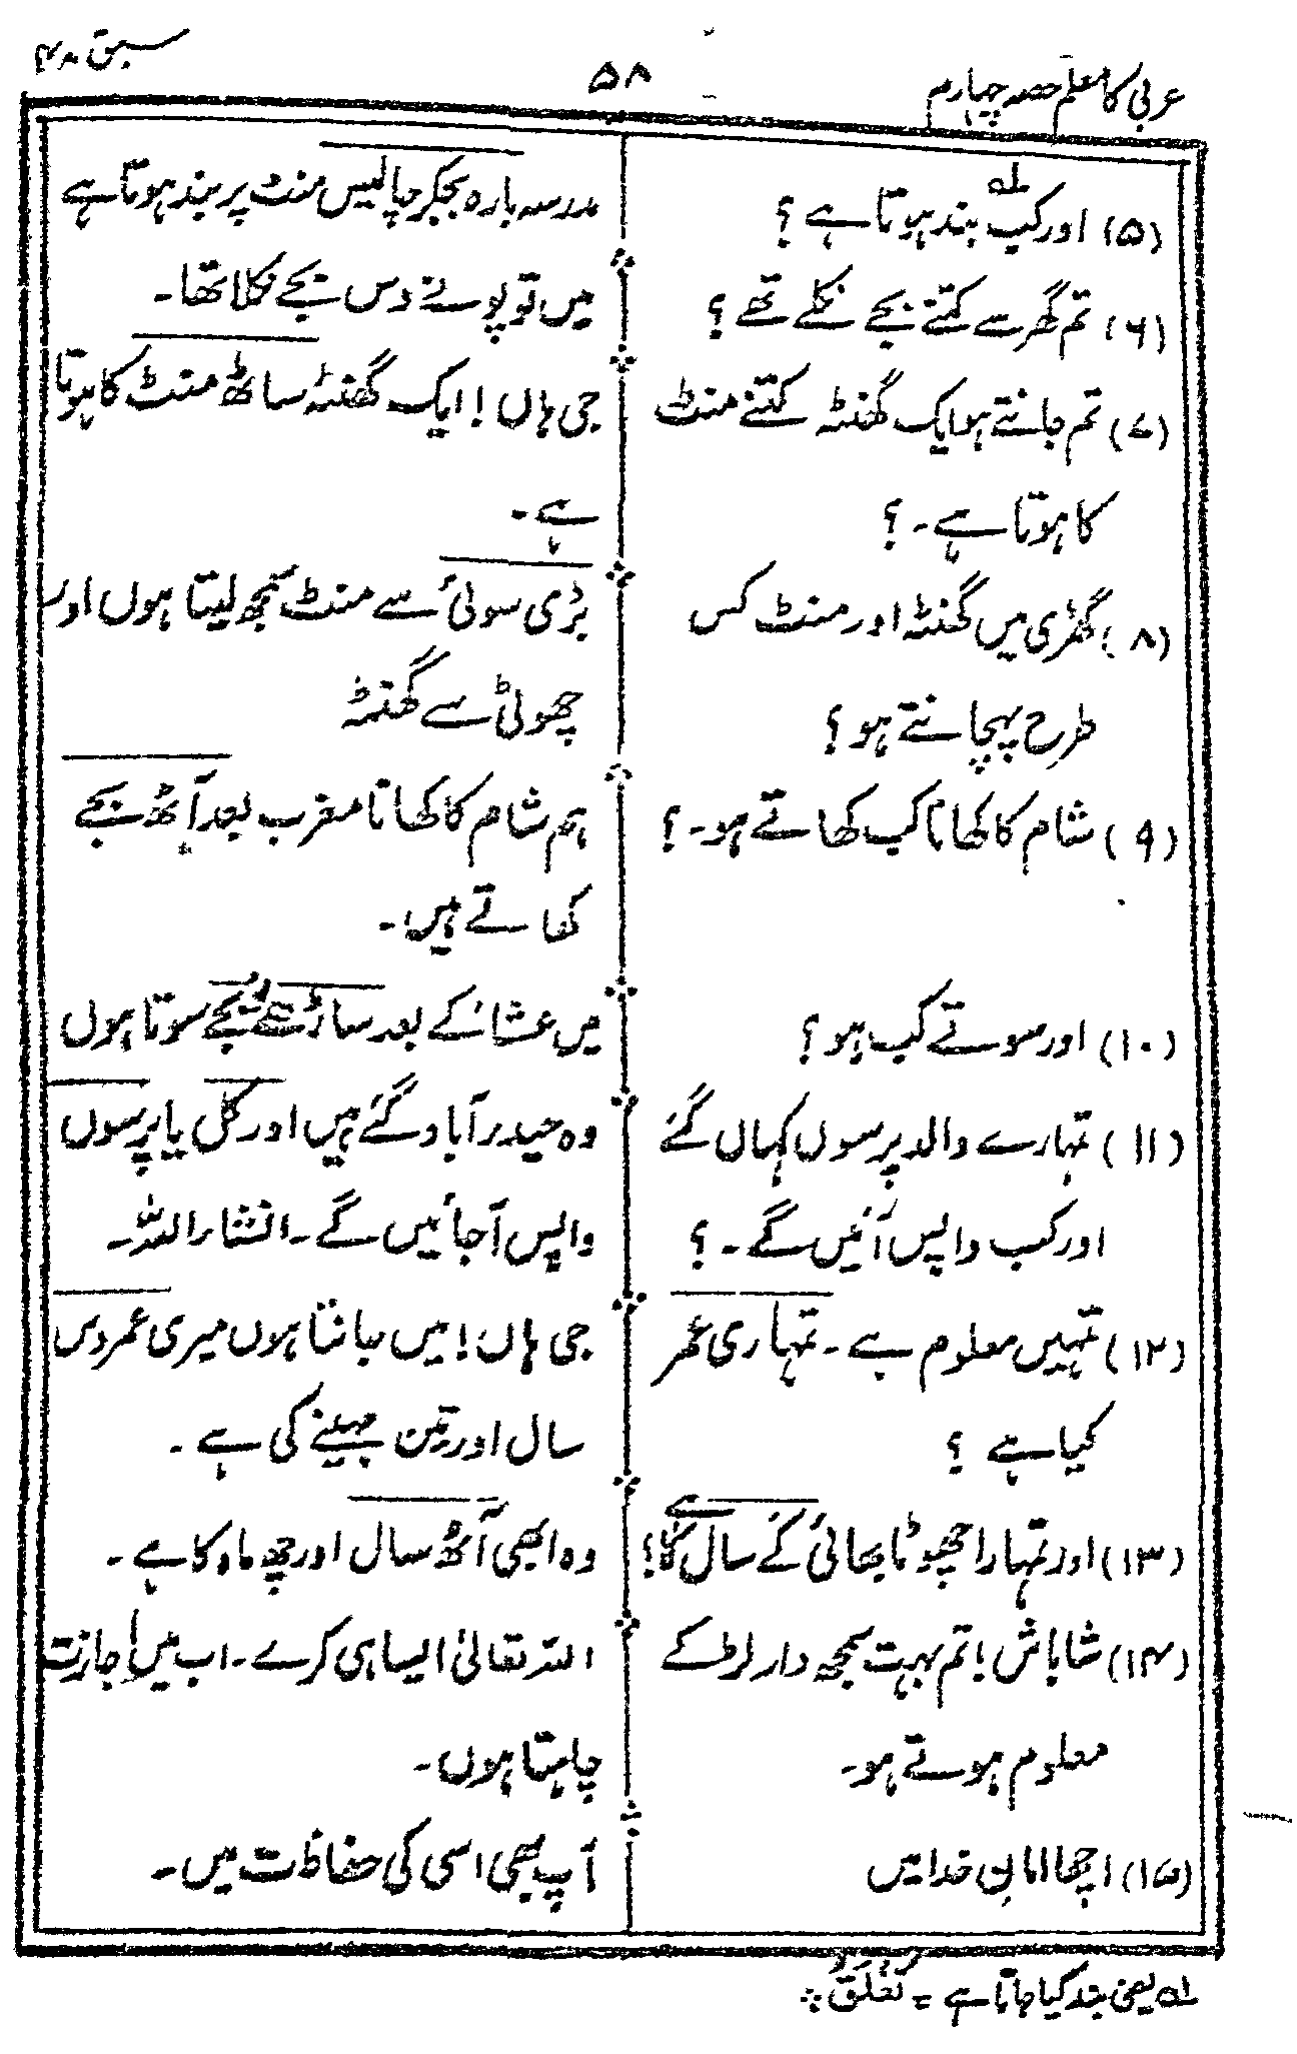 عربی کا معلم حصہ چہارم
۵۸
سبق ۴۸
(۵) اور کب بند ہوتا ہے ؟ لہ
مدرسہ بارہ بجکر چالیس منٹ پر بند ہوتا ہے
(۶) تم گھر سے کتنے بجے نکلے تھے ؟
میں تو پونے دس بجے نکلا تھا۔
(۷) تم جانتے ہو ایک گھنٹہ کتنے منٹ
کا ہوتا ہے ۔ ؟
جی ہاں ! ایک گھنٹہ ساٹھ منٹ کا ہوتا
ہے ۔
(۸) گھڑی میں گھنٹہ اور منٹ کس
طرح پہچانتے ہو ؟
بڑی سوئی سے منٹ سمجھ لیتا ہوں اور
چھوٹی سے گھنٹہ
(۹) شام کا کھانا کب کھاتے ہو ۔ ؟
ہم شام کا کھانا مغرب بعد آٹھ بجے
کھاتے ہیں ۔
(۱۰) اور سوتے کب ہو ؟
میں عشاء کے بعد ساڑھے بجے سوتا ہوں
(۱۱) تمہارے والد پرسوں کہاں گئے
اور کب واپس آئیں گے ۔ ؟
وہ حیدر آباد گئے ہیں اور کل یا پرسوں
واپس آجائیں گے ۔ انشاء اللہ۔
(۱۲) تمہیں معلوم ہے ۔ تمہاری عمر
کیا ہے ؟
جی ہاں ! میں جانتا ہوں میری عمر دس
سال اور تین مہینے کی ہے ۔
(۱۳) اور تمہارا چھوٹا بھائی کَے سال کا ہے ؟
وہ ابھی آٹھ سال اور چھ ماہ کا ہے ۔
(۱۴) شاباش ! تم بہت سمجھ دار لڑکے
معلوم ہوتے ہو۔
اللہ تعالیٰ ایسا ہی کرے ۔ اب میں اجازت
چاہتا ہوں ۔
(۱۵) اچھا امانِ خدا میں
آپ بھی اسی کی حفاظت میں ۔
لہ یعنی بند کیا جاتا ہے = تُغْلَقُ